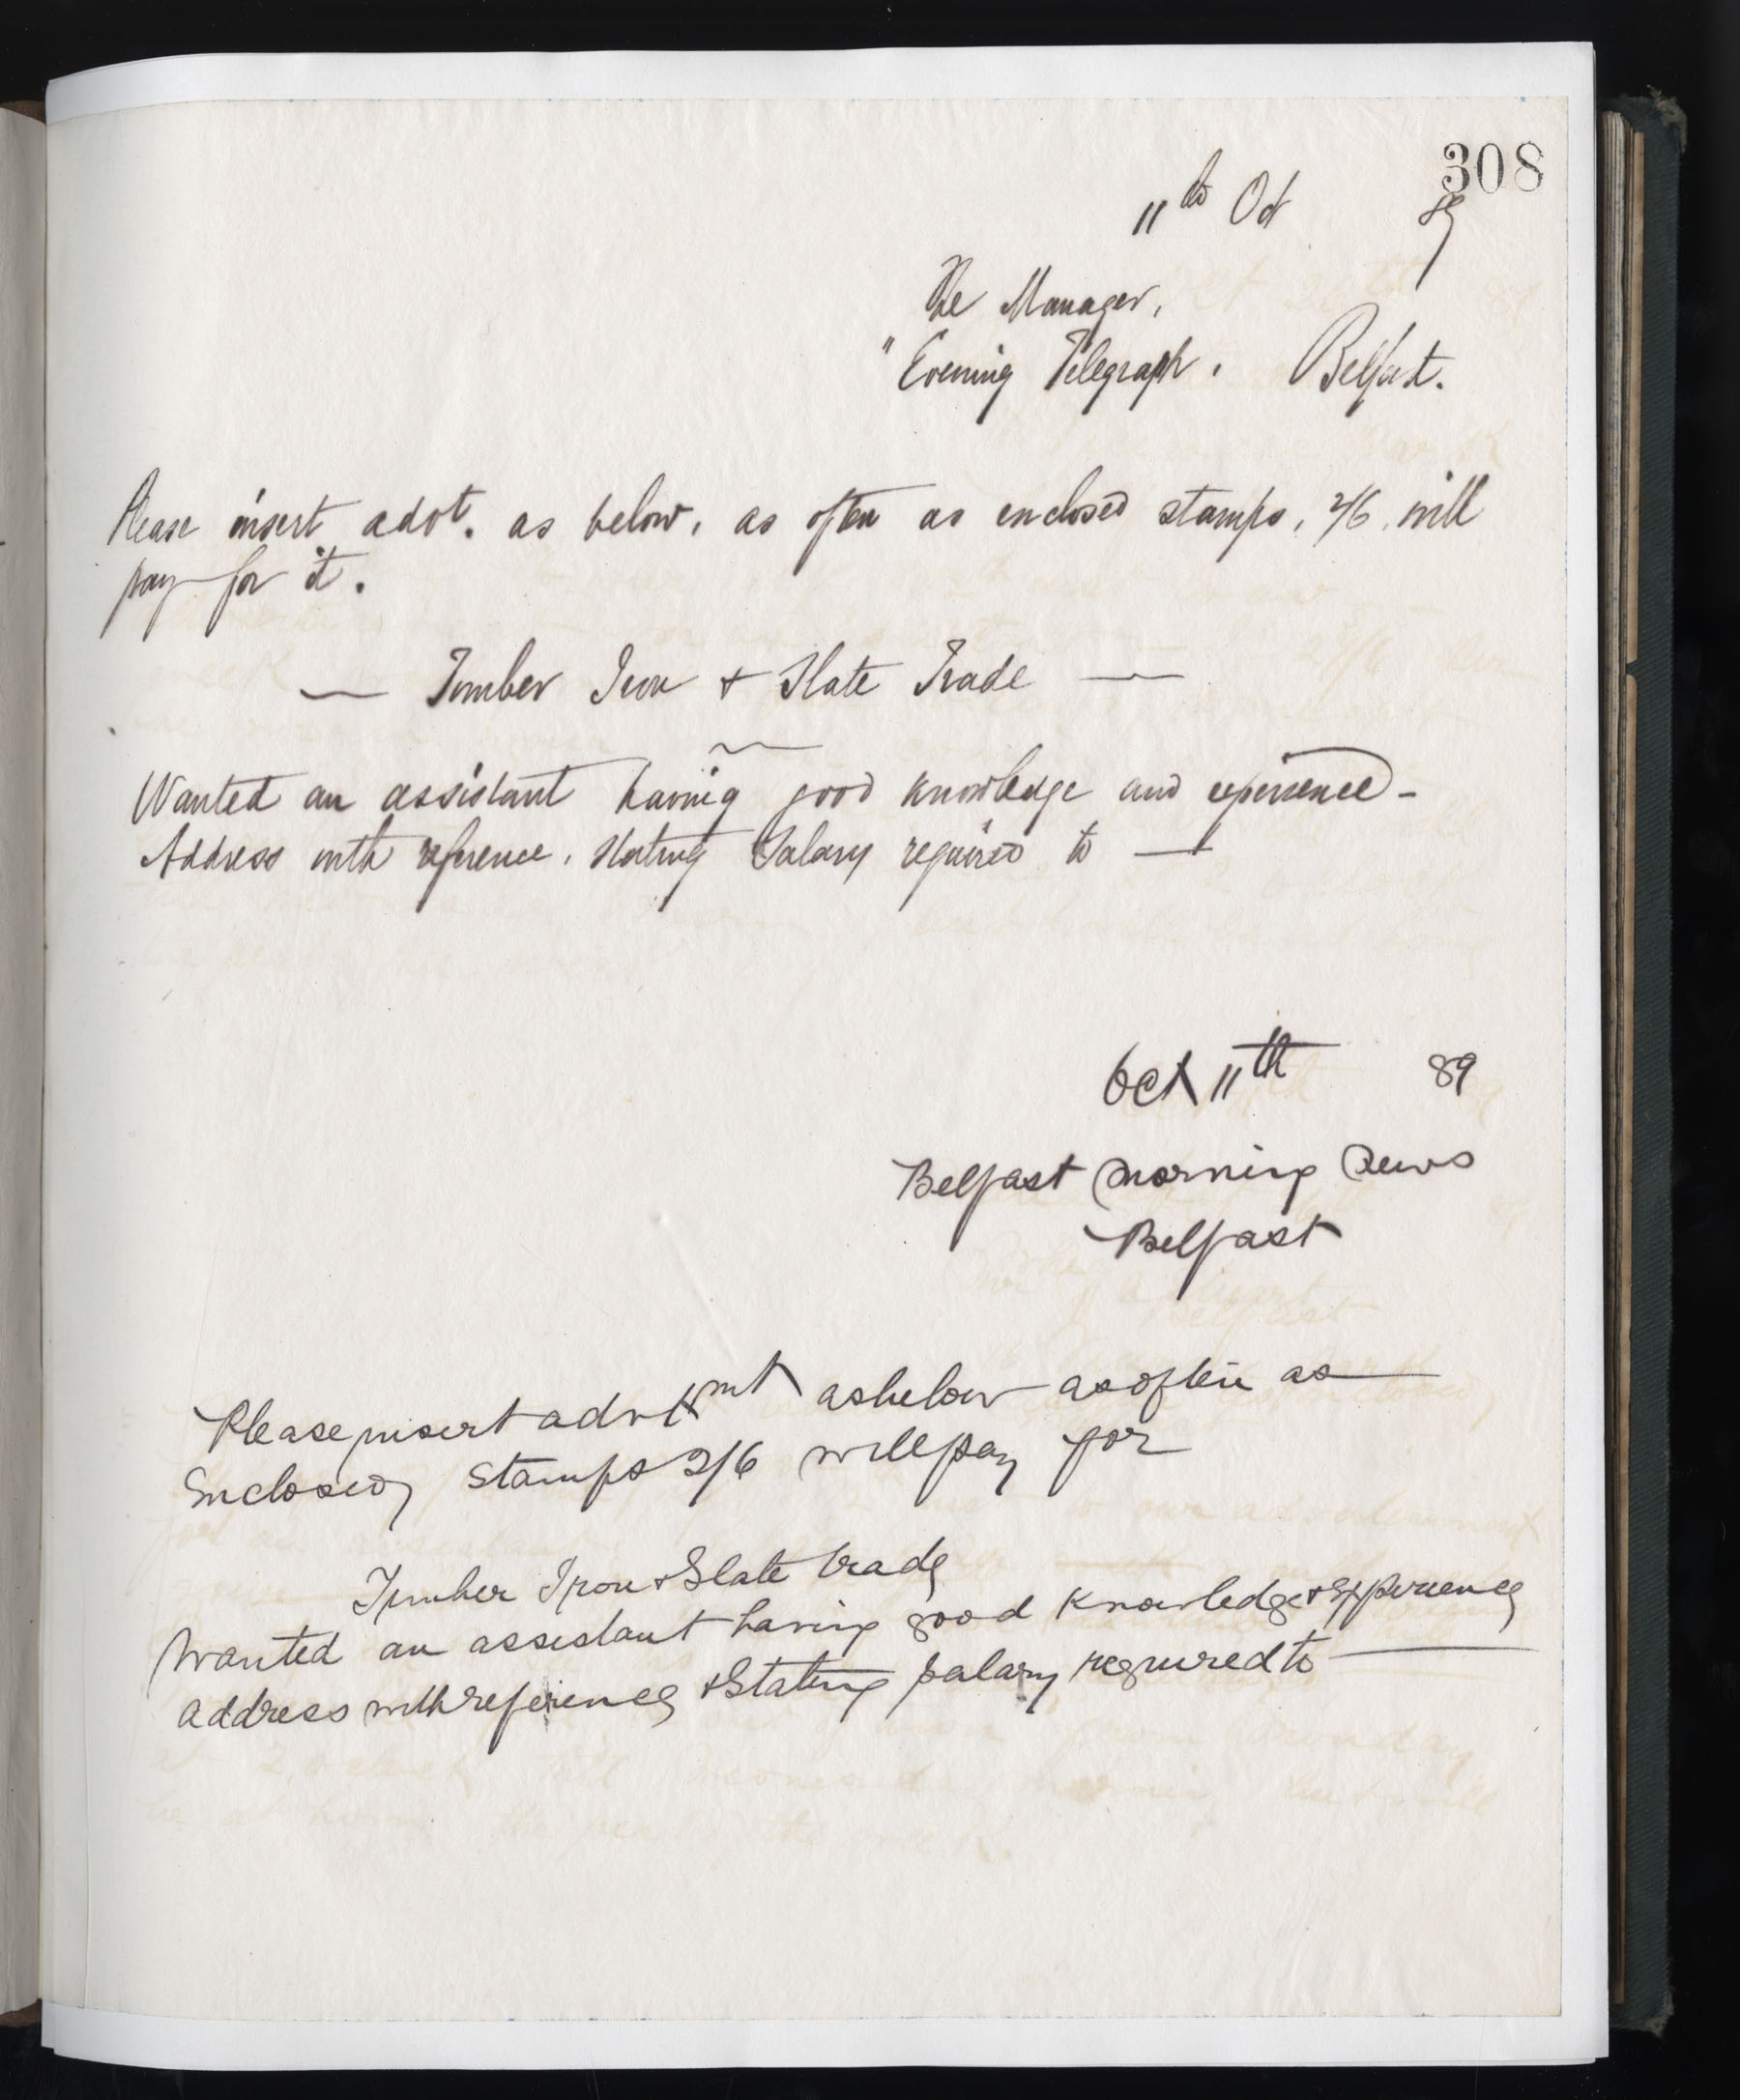 308
11th Oct 89
The Manager,
"Evening Telegraph, Belfast.
Please insert advt. as below, as often as enclosed stamps, 2/6, will
pay for it.
— Timber Iron & Slate Trade —
Wanted an assistant having good knowledge and experience -
Address with reference, stating Salary required to —
Oct 11th 89
Belfast Morning News
Belfast
Please insert advtmt as below as often as
Enclosed stamps 2/6 will pay for
Timber Iron & Slate trade
Wanted an assistant having good knowledge & Experience
address with reference & Stating salary required to —